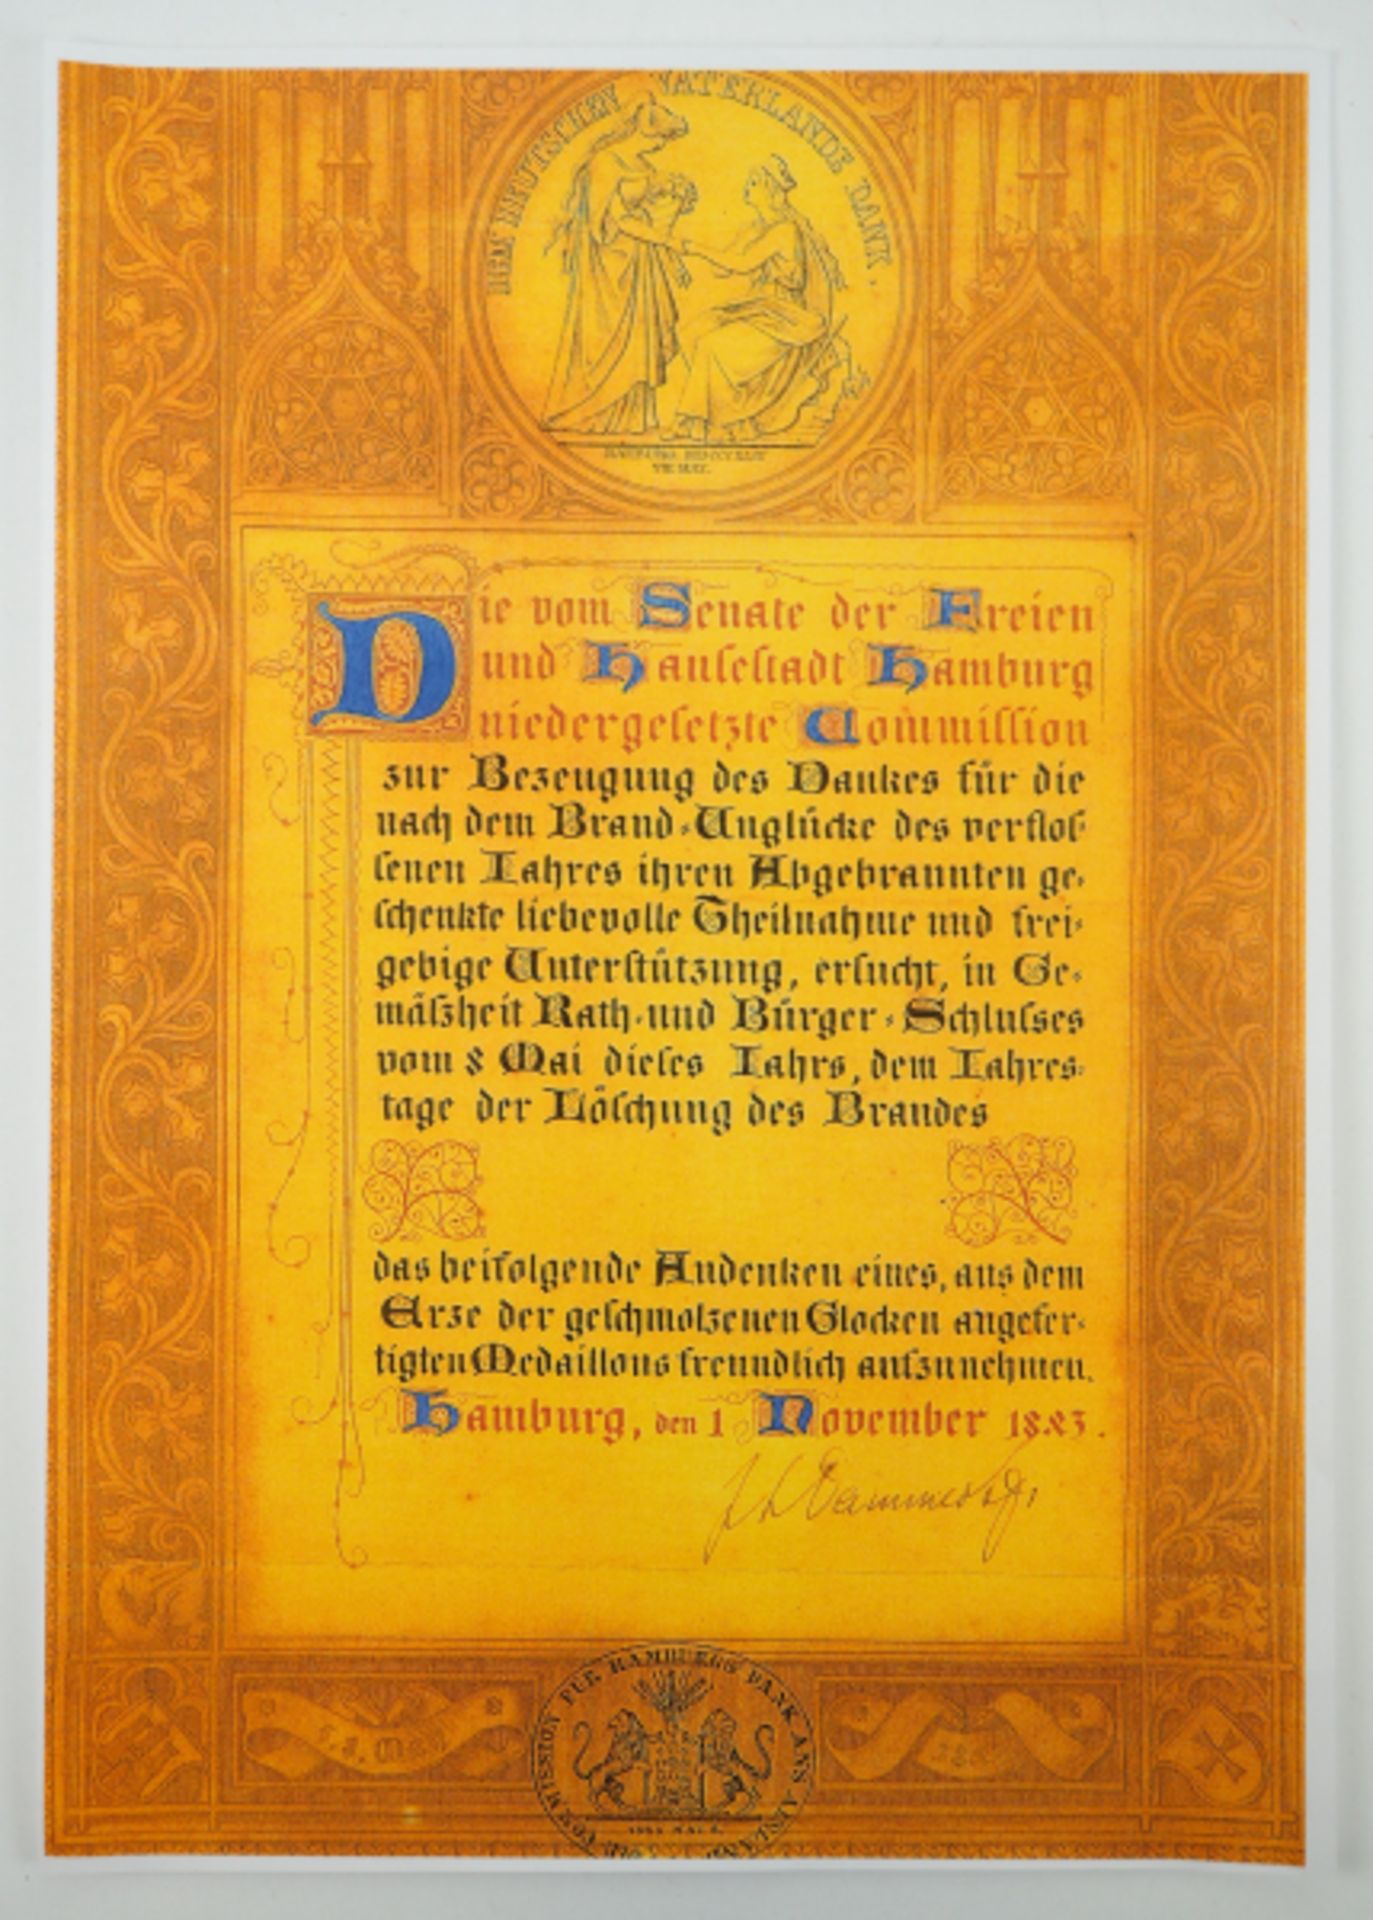 DEM DEUTSCHEN VATERLANDE DANK.
VII MAI.
Die vom Senate der Freien
und Hanſeſtadt Hamburg
niedergeſetzte Commiſſion
zur Bezeugung des Dankes für die
nach dem Brand-Unglücke des verfloſ-
ſenen Jahres ihren Abgebrannten ge-
ſchenkte liebevolle Theilnahme und frei-
gebige Unterſtützung, erſucht, in Ge-
mäſzheit Rath-und Bürger-Schluſses
vom 8 Mai dieſes Jahrs, dem Jahres-
tage der Löſchung des Brandes
das beifolgende Andenken eines, aus dem
Erze der geſchmolzenen Glocken angefer-
tigten Medaillons freundlich aufzunehmen.
Hamburg, den 1 November 1843.
COMMISSION FUR HAMBURGS DANK ANS